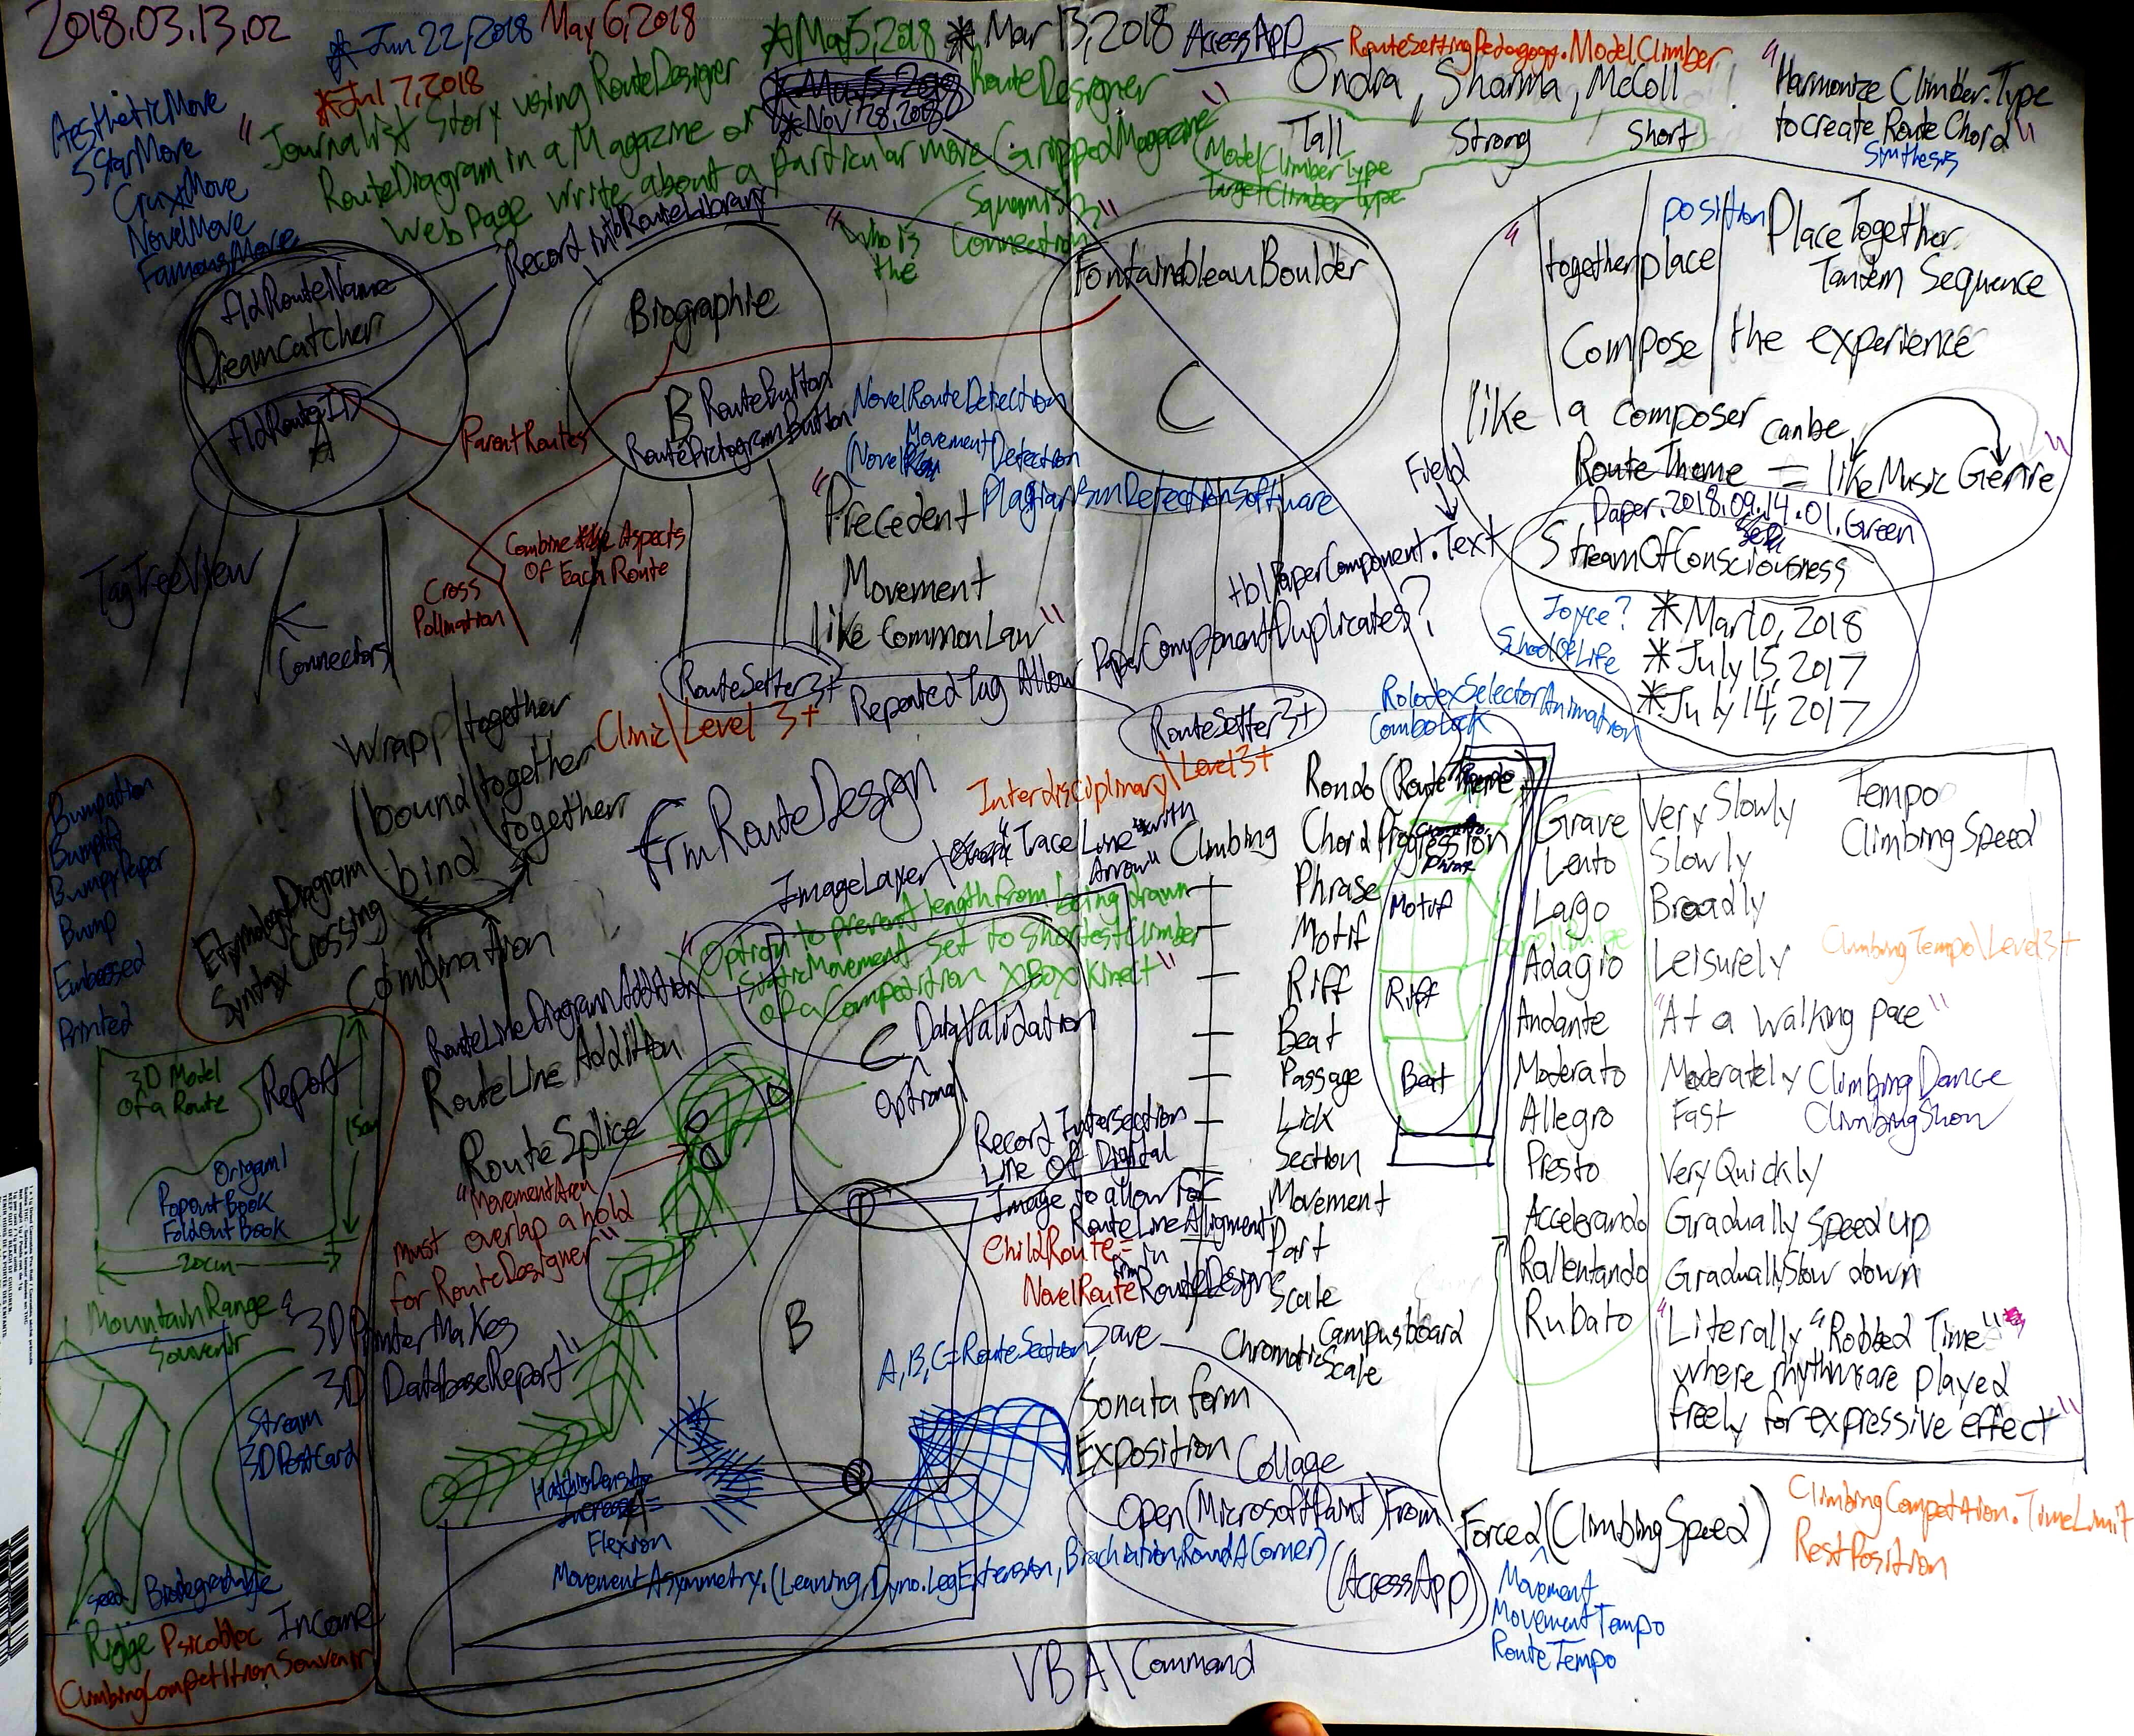 2018.03.13.02
* Jun 22, 2018
May 6, 2018
* Mar 13, 2018
AccessApp
* Jul 7, 2018
* Nov 28, 2018
RouteDesigner
RouteSettingPedagogy.ModelClimber
Ondra, Sharma, McColl
Tall Strong Short
ModelClimberType
TargetClimberType
"Harmonize Climber.Type
to create Route Chord"
Synthesis
AestheticMove
5StarMove
CruxMove
NovelMove
FamousMove
"Journalist Story using RouteDesigner
RouteDiagram in a Magazine or
WebPage write about a particular move (GrippedMagazine"
"Who is
the
Squamish
Connection"
Record into RouteLibrary
fldRouteName
DreamCatcher
fldRouteID
A
Biographie
B RouteButton
RoutePictogramButton
FontainebleauBoulder
C
ParentRoutes
Cross
Pollination
Combine the Aspects
Of Each Route
TagTreeView
Connectors
NovelRouteDetection
MovementDetection
PlagiarismDetectionSoftware
"Precedent
Movement
like CommonLaw"
"together place
position
PlaceTogether
Tandem Sequence
Compose the experience
like a composer can be
Route Theme = like Music Genre"
Paper.2018.09.14.01.Green
StreamOfConsciousness
Joyce?
SchoolOfLife
* Mar 10, 2018
* July 15, 2017
* July 14, 2017
Field
tblPaperComponent.Text
PaperComponentDuplicates?
RouteSetter3+
Repeated Tag Allow
RouteSetter3+
Clinic\Level 3+
Interdisciplinary\Level3+
RolodexSelectorAnimation
ComboLock
Wrap together
(bound together
bind together
EtymologyDiagram
Syntax Crossing
Combination
frmRouteDesign
ImageLayer
"TraceLine" with
Arrow"
"Option to prevent length from being drawn
StaticMovement Set to shortest Climber
of a Competition XBox Kinect"
C DataValidation
Optional
RouteLineDiagramAddition
RouteLine Addition
RouteSplice
"MovementArea
must overlap a hold
for RouteDesigner"
Record Intersection
Line Of Digital
Image to allow for
RouteLineAlignment
in
RouteDesign
ChildRoute=
NovelRoute
Save
A,B,C=RouteSection
B
Rondo (Route Theme)
Climbing Chord Progression
Phrase
Motif
Riff
Beat
Passage
Lick
Section
Movement
Part
Scale
Campusboard
ChromaticScale
Phrase
Motif
Riff
Beat
Tempo
Climbing Speed
Grave Very Slowly
Lento Slowly
Largo Broadly
Adagio Leisurely
ClimbingTempo\Level3+
Andante "At a walking pace"
Moderato Moderately
ClimbingDance
Allegro Fast
ClimbingShow
Presto Very Quickly
Accelerando Gradually Speed up
Rallentando Gradually Slow down
Rubato "Literally "Robbed Time"
where rhythms are played
freely for expressive effect"
Bumpation
Bumpify
BumpyPaper
Bump
Embossed
Printed
3D Model
Of a Route
Report
15cm
Origami
PopoutBook
FoldOut Book
20cm
MountainRange
Souvenir
"3DPrinter Makes
3D DatabaseReport"
Stream
3DPostCard
seed Biodegradable
Ridge Psicobloc Income
ClimbingCompetitionSouvenir
HatchingDensity
Increase=
Flexion
A
MovementAsymmetry.(Leaning, Dyno.LegExtension, Brachiation, RoundACorner)
Sonata form
Exposition
Collage
Open(MicrosoftPaint)From
(AccessApp)
Forced(ClimbingSpeed)
Movement
MovementTempo
RouteTempo
ClimbingCompetition.TimeLimit
RestPosition
VBA\Command